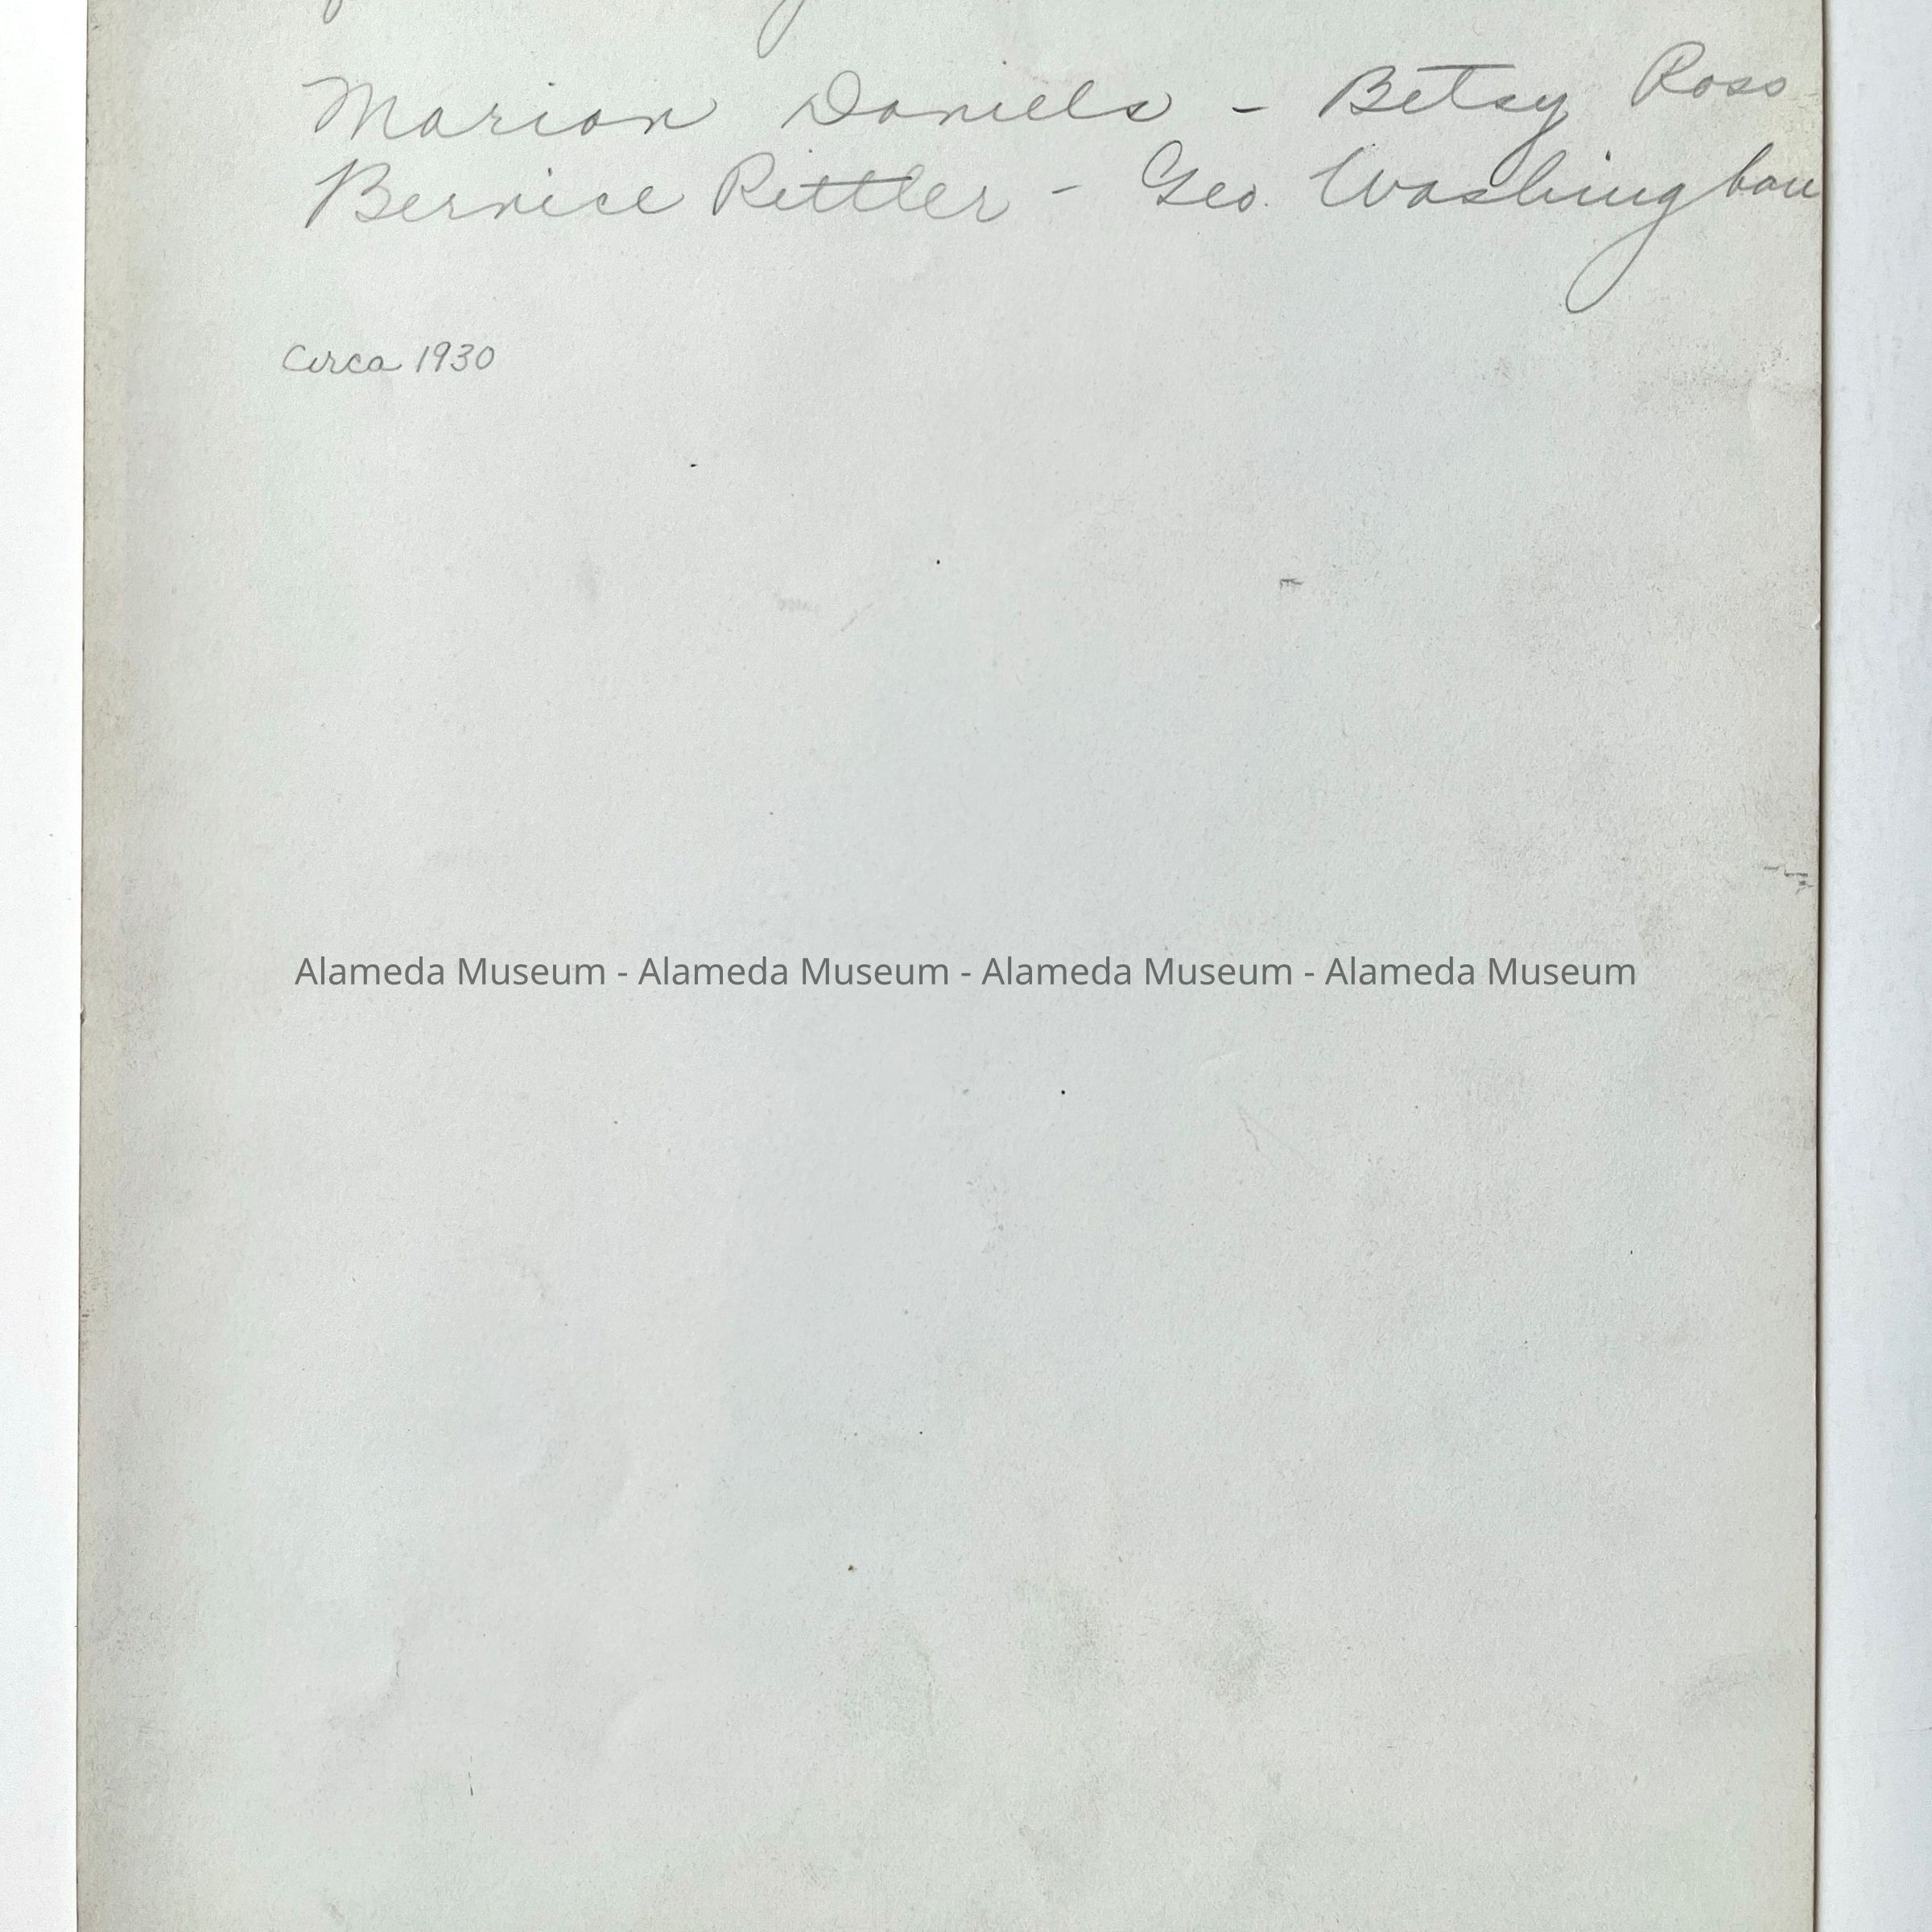 Marion Daniels - Betsy Ross
Bernice Rittler - Geo. Washington
Circa 1930
Alameda Museum - Alameda Museum - Alameda Museum - Alameda Museum